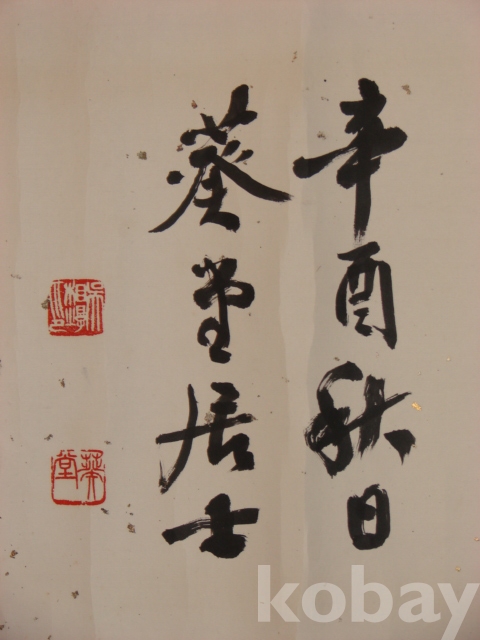 辛酉秋日
葵堂居士
葵堂
kobay